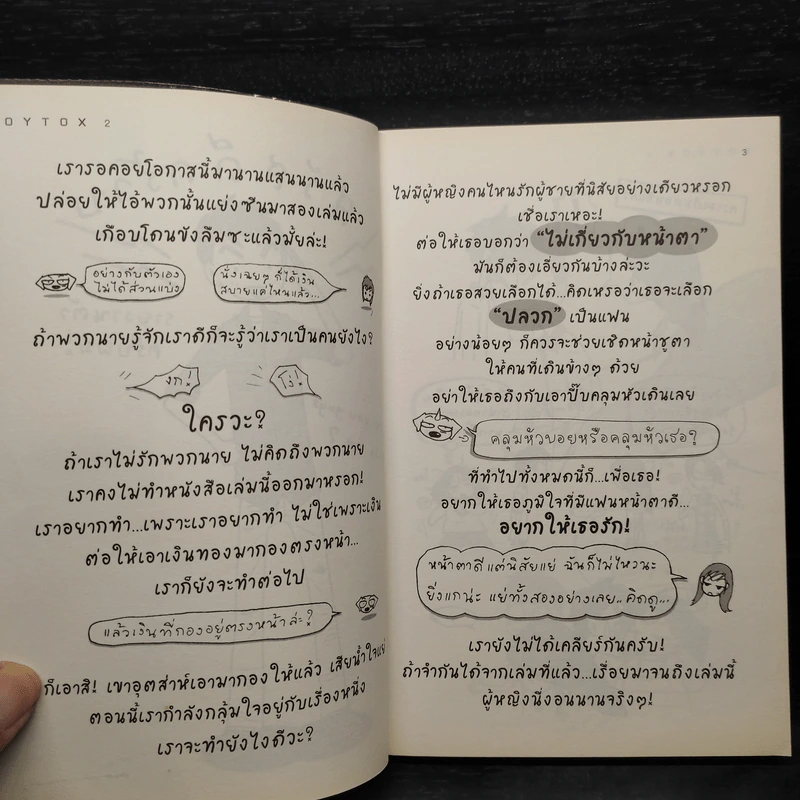 OYTOX 2
เรารอคอยโอกาสนี้มานานแสนนานแล้ว
ปล่อยให้ไอ้พวกนั้นแย่งซีนมาสองเล่มแล้ว
เกือบโดนขังลืมซะแล้วมั้ยล่ะ!
อย่างกับตัวเอง
ไม่ได้ส่วนแบ่ง
นั่งเฉยๆ ก็ได้เงิน
สบายแค่ไหนแล้ว...
ถ้าพวกนายรู้จักเราดีก็จะรู้ว่าเราเป็นคนยังไง?
งก!
โง่!
ใครวะ?
ถ้าเราไม่รักพวกนาย ไม่คิดถึงพวกนาย
เราคงไม่ทำหนังสือเล่มนี้ออกมาหรอก!
เราอยากทำ...เพราะเราอยากทำ ไม่ใช่เพราะเงิน
ต่อให้เอาเงินทองมากองตรงหน้า...
เราก็ยังจะทำต่อไป
แล้วเงินที่กองอยู่ตรงหน้าล่ะ?
ก็เอาสิ! เขาอุตส่าห์เอามากองให้แล้ว เสียน้ำใจแย่
ตอนนี้เรากำลังกลุ้มใจอยู่กับเรื่องหนึ่ง
เราจะทำยังไงดีวะ?
3
ไม่มีผู้หญิงคนไหนรักผู้ชายที่นิสัยอย่างเดียวหรอก
เชื่อเราเหอะ!
ต่อให้เธอบอกว่า “ไม่เกี่ยวกับหน้าตา”
มันก็ต้องเอี่ยวกันบ้างล่ะวะ
ยิ่งถ้าเธอสวยเลือกได้...คิดเหรอว่าเธอจะเลือก
“ปลวก” เป็นแฟน
อย่างน้อยๆ ก็ควรจะช่วยเชิดหน้าชูตา
ให้คนที่เดินข้างๆ ด้วย
อย่าให้เธอถึงกับเอาปี๊บคลุมหัวเดินเลย
คลุมหัวบอยหรือคลุมหัวเธอ?
ที่ทำไปทั้งหมดนี้ก็...เพื่อเธอ!
อยากให้เธอภูมิใจที่มีแฟนหน้าตาดี...
อยากให้เธอรัก!
หน้าตาดี แต่นิสัยแย่ ฉันก็ไม่ไหวนะ
ยิ่งแกน่ะ แย่ทั้งสองอย่างเลย..คิดดู...
เรายังไม่ได้เคลียร์กันครับ!
ถ้าจำกันได้จากเล่มที่แล้ว...เรื่อยมาจนถึงเล่มนี้
ผู้หญิงนี่งอนนานจริงๆ!